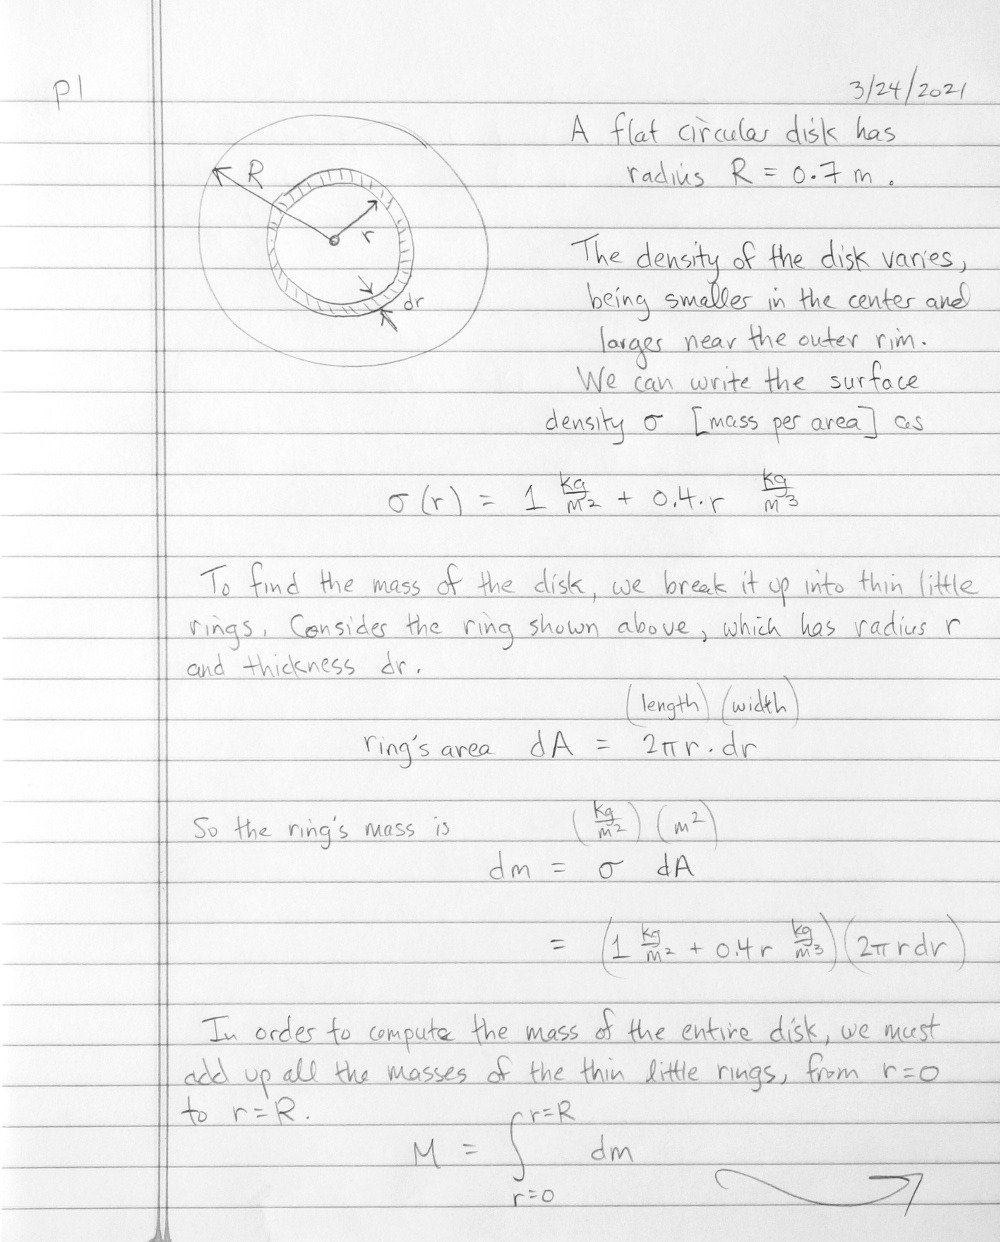 p1
3/24/2021
A flat circular disk has
radius R = 0.7 m.
R
r
dr
The density of the disk varies,
being smaller in the center and
larger near the outer rim.
We can write the surface
density σ [mass per area] as
σ(r) = 1 kg/m² + 0.4·r kg/m³
To find the mass of the disk, we break it up into thin little
rings. Consider the ring shown above, which has radius r
and thickness dr.
(length) (width)
ring's area dA = 2πr · dr
So the ring's mass is (kg/m²) (m²)
dm = σ dA
= (1 kg/m² + 0.4 r kg/m³) (2πr dr)
In order to compute the mass of the entire disk, we must
add up all the masses of the thin little rings, from r=0
to r=R.
M = ∫_{r=0}^{r=R} dm